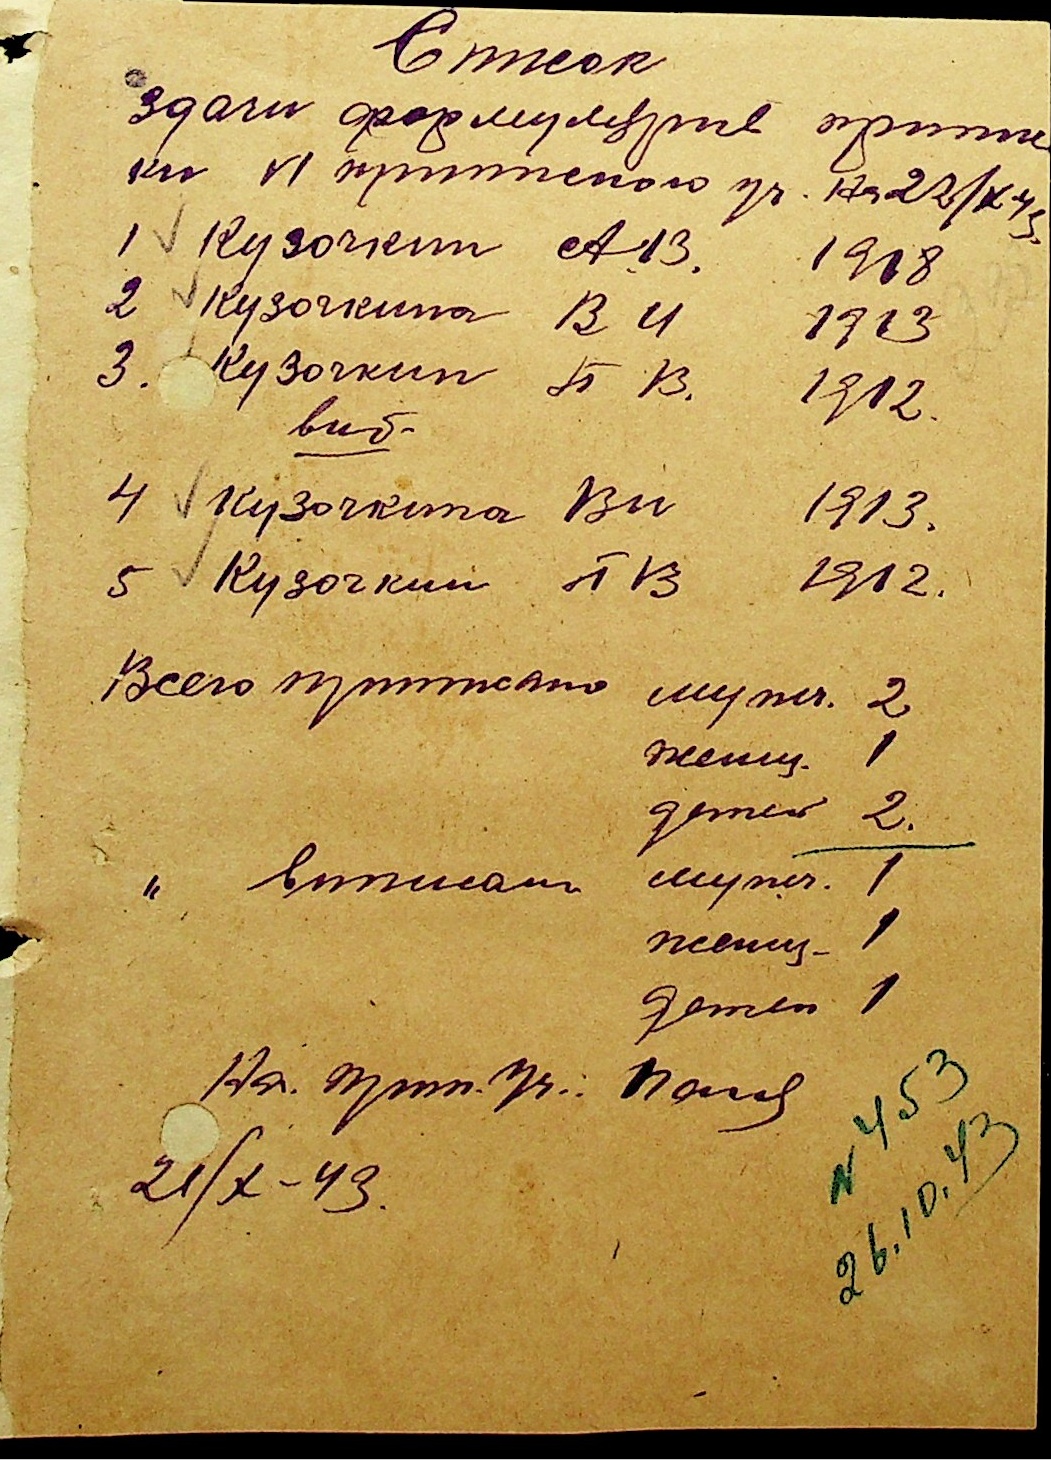 Список
здачи формулярів припис
ки VI приписного уч. На 22/X-43.
1 Кузочкин А В. 1918
2 Кузочкина В И 1913
3. Кузочкин П В. 1912.
виб.
4 Кузочкина В и 1913.
5 Кузочкин П В 1912.
Всего приписано мужч. 2
женщ. 1
детей 2.
" виписан мужч. 1
женщ. 1
детей 1
Нач. прип. уч.:
21/X-43.
N 453
26.10.43